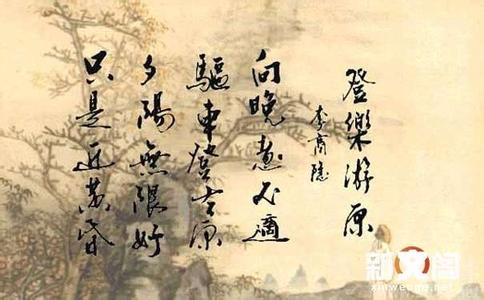 登樂游原
李商隱
向晚意不適
驅車登古原
夕陽無限好
只是近黄昏
新文阁
xinwenge.net